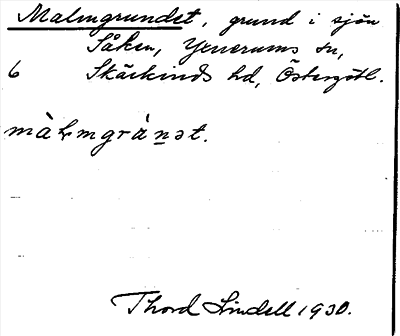 Malmgrundet, grund i sjön
Såken, Yxnerums sn,
6 Skärkinds hd, Östergötl.
màlmgrànət.
Thord Lindell 1930.